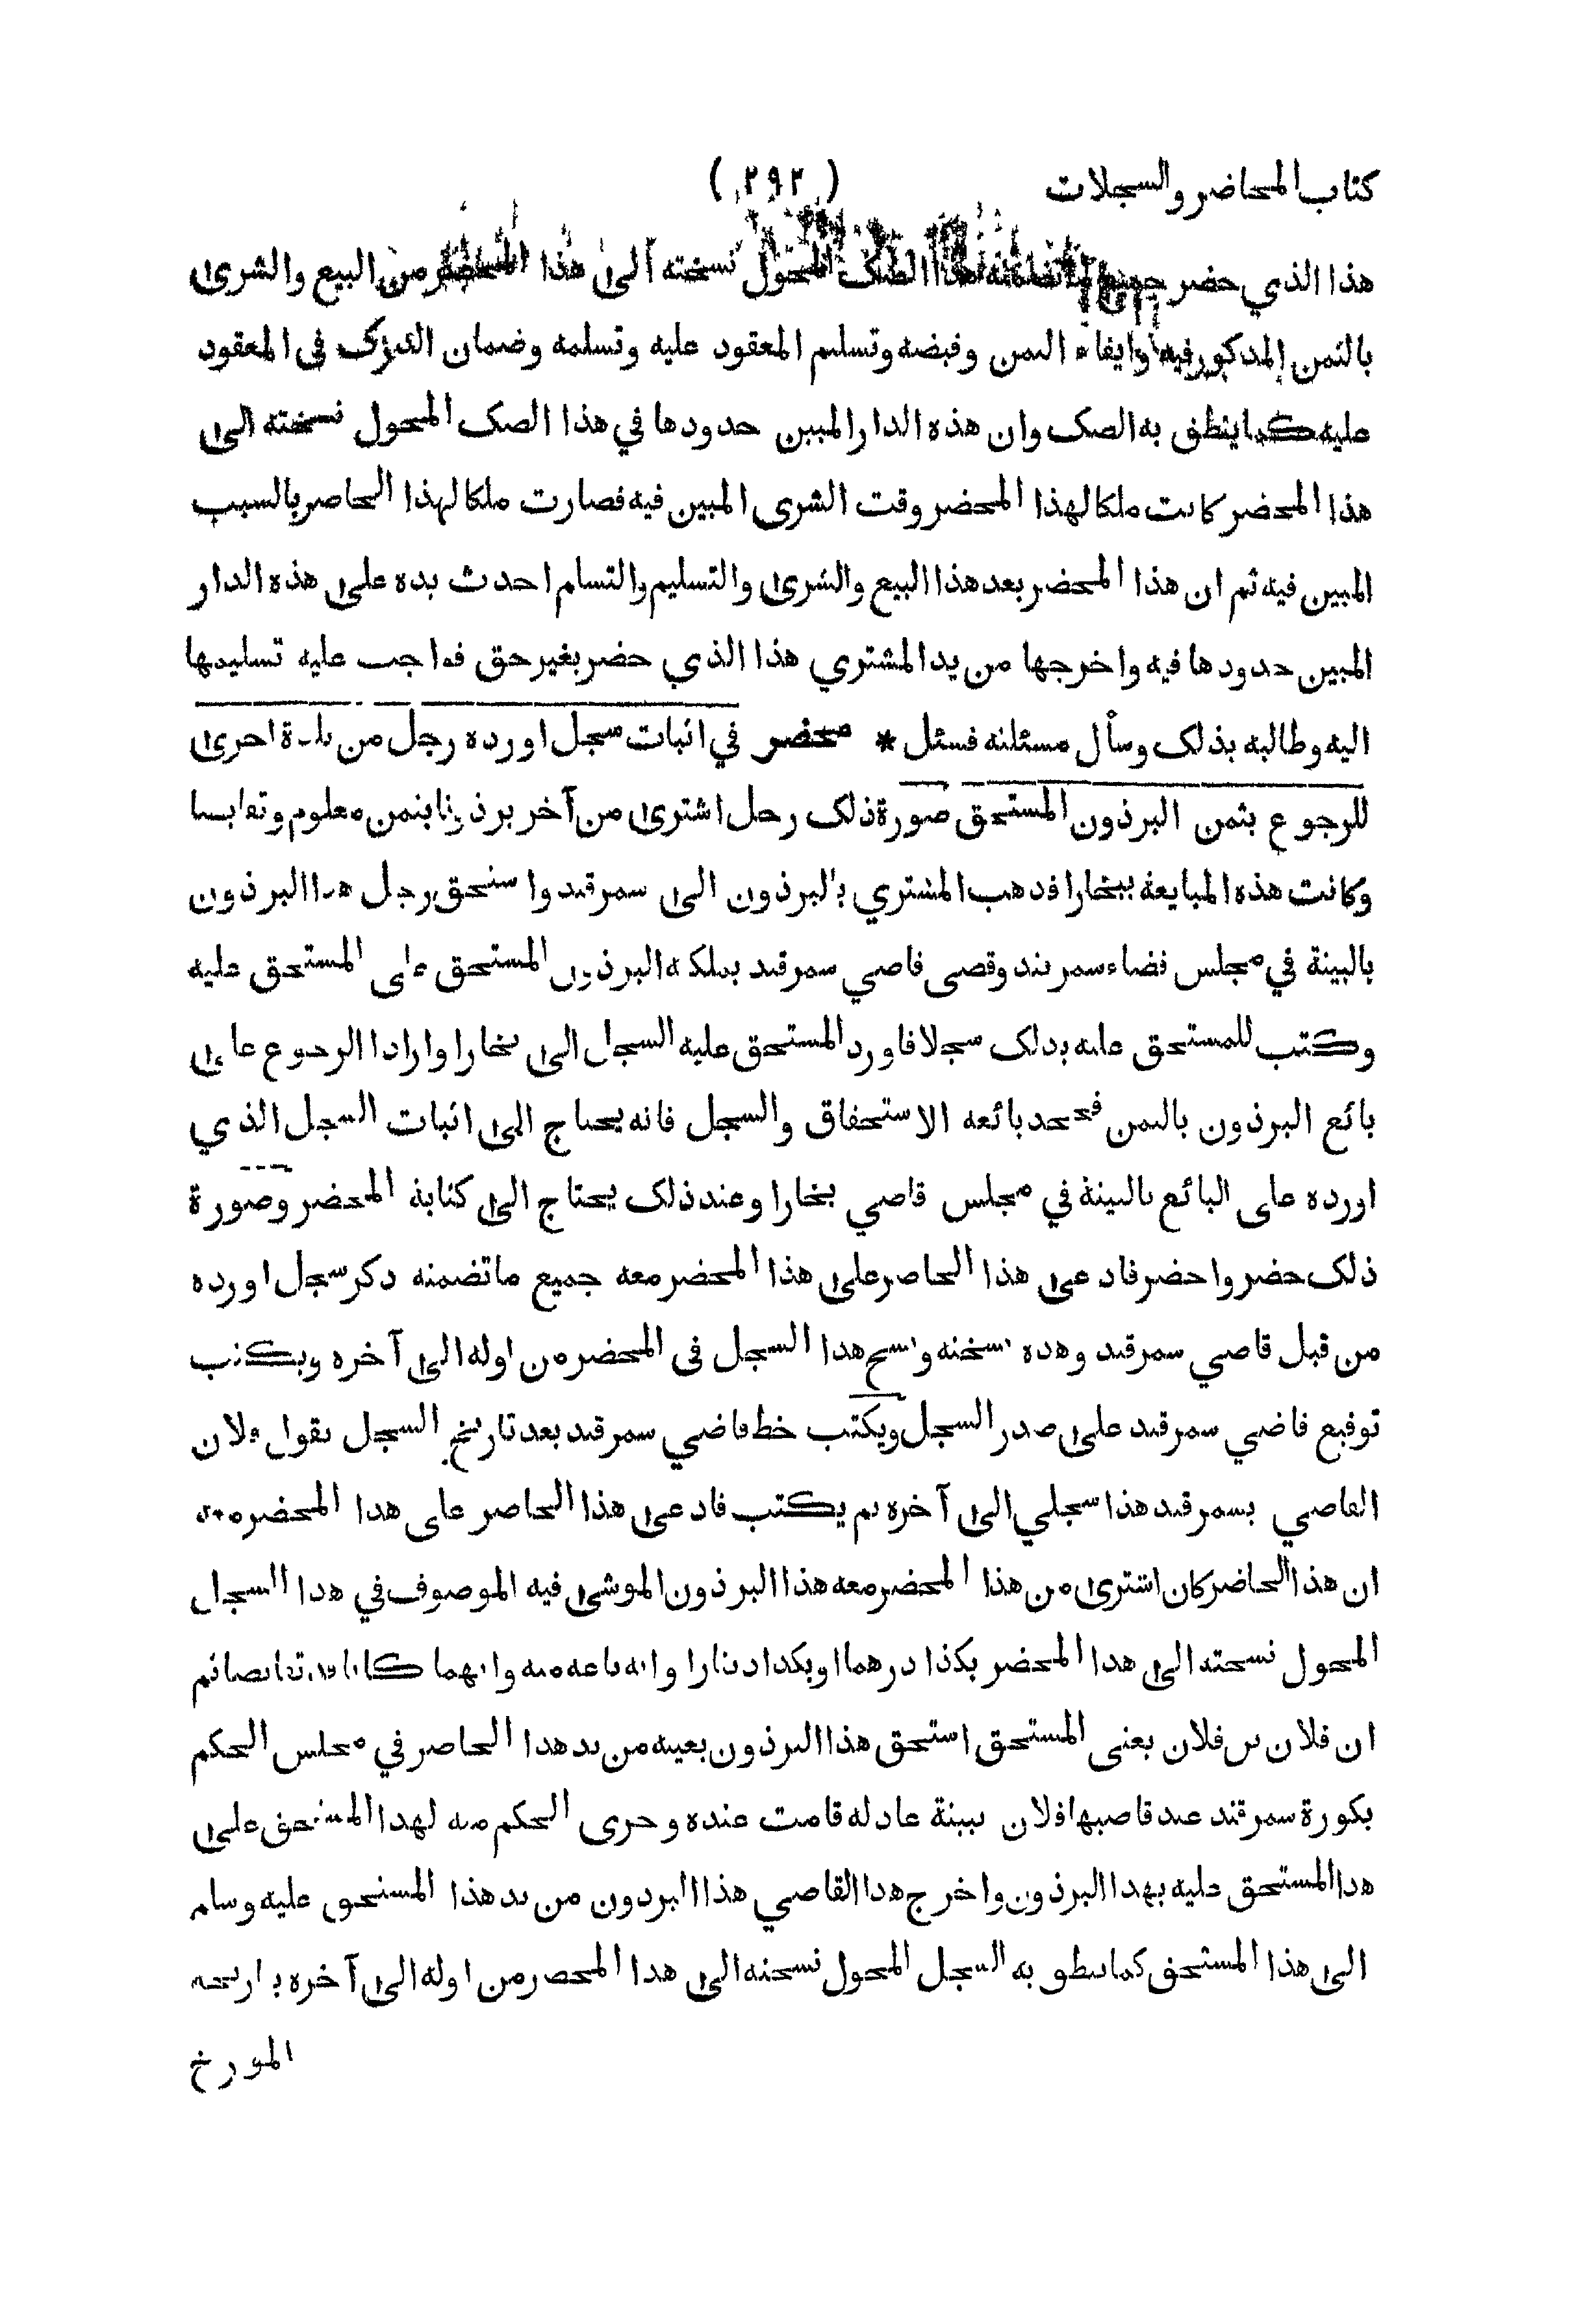 كتاب المحاضر والسجلات
( ٢٩٢ )
هذا الذي حضر جميع ما تضمنه هذا الصك المحول نسخته الى هذا المحضر من البيع والشرى
بالثمن المذكور فيه وايفاء الثمن وقبضه وتسليم المعقود عليه وتسلمه وضمان الدرك فى المعقود
عليه كما ينطق به الصك وان هذه الدار المبين حدودها في هذا الصك المحول نسخته الى
هذا المحضر كانت ملكا لهذا المحضر وقت الشرى المبين فيه فصارت ملكا لهذا الحاضر بالسبب
المبين فيه ثم ان هذا المحضر بعد هذا البيع والشرى والتسليم والتسلم احدث يده على هذه الدار
المبين حدودها فيه واخرجها من يد المشتري هذا الذي حضر بغير حق فواجب عليه تسليمها
اليه وطالبه بذلك وسأل مسئلته فسئل * محضر في اثبات سجل اورده رجل من بلدة اخرى
للرجوع بثمن البرذون المستحق صورة ذلك رجل اشترى من آخر برذونا بثمن معلوم وتقابضا
وكانت هذه المبايعة ببخارا فذهب المشتري بالبرذون الى سمرقند واستحق رجل هذا البرذون
بالبينة في مجلس قضاء سمرقند وقضى قاضي سمرقند بملكه البرذون المستحق على المستحق عليه
وكتب للمستحق عليه بذلك سجلا فاورد المستحق عليه السجل الى بخارا وارادا الرجوع على
بائع البرذون بالثمن فجحد بائعه الاستحقاق والسجل فانه يحتاج الى اثبات السجل الذي
اورده على البائع بالبينة في مجلس قاضي بخارا وعند ذلك يحتاج الى كتابة المحضر وصورة
ذلك حضر واحضر فادعى هذا الحاضر على هذا المحضر معه جميع ما تضمنه ذكر سجل اورده
من قبل قاضي سمرقند وهذه نسخته وينسخ هذا السجل فى المحضر من اوله الى آخره ويكتب
توقيع قاضي سمرقند على صدر السجل ويكتب خط قاضي سمرقند بعد تاريخ السجل يقول فلان
القاضي بسمرقند هذا سجلي الى آخره ثم يكتب فادعى هذا الحاضر على هذا المحضر معه
ان هذا الحاضر كان اشترى من هذا المحضر معه هذا البرذون الموشى فيه الموصوف في هذا السجل
المحول نسخته الى هذا المحضر بكذا درهما او بكذا دينارا وانه باعه منه وانهما كانا قد تقابضا ثم
ان فلان بن فلان يعنى المستحق استحق هذا البرذون بعينه من يد هذا الحاضر في مجلس الحكم
بكورة سمرقند عند قاضيها فلان ببينة عادله قامت عنده وجرى الحكم منه لهذا المستحق على
هذا المستحق عليه بهذا البرذون واخرج هذا القاضي هذا البرذون من يد هذا المستحق عليه وسلم
الى هذا المستحق كما ينطق به السجل المحول نسخته الى هذا المحضر من اوله الى آخره بتاريخه
المورخ